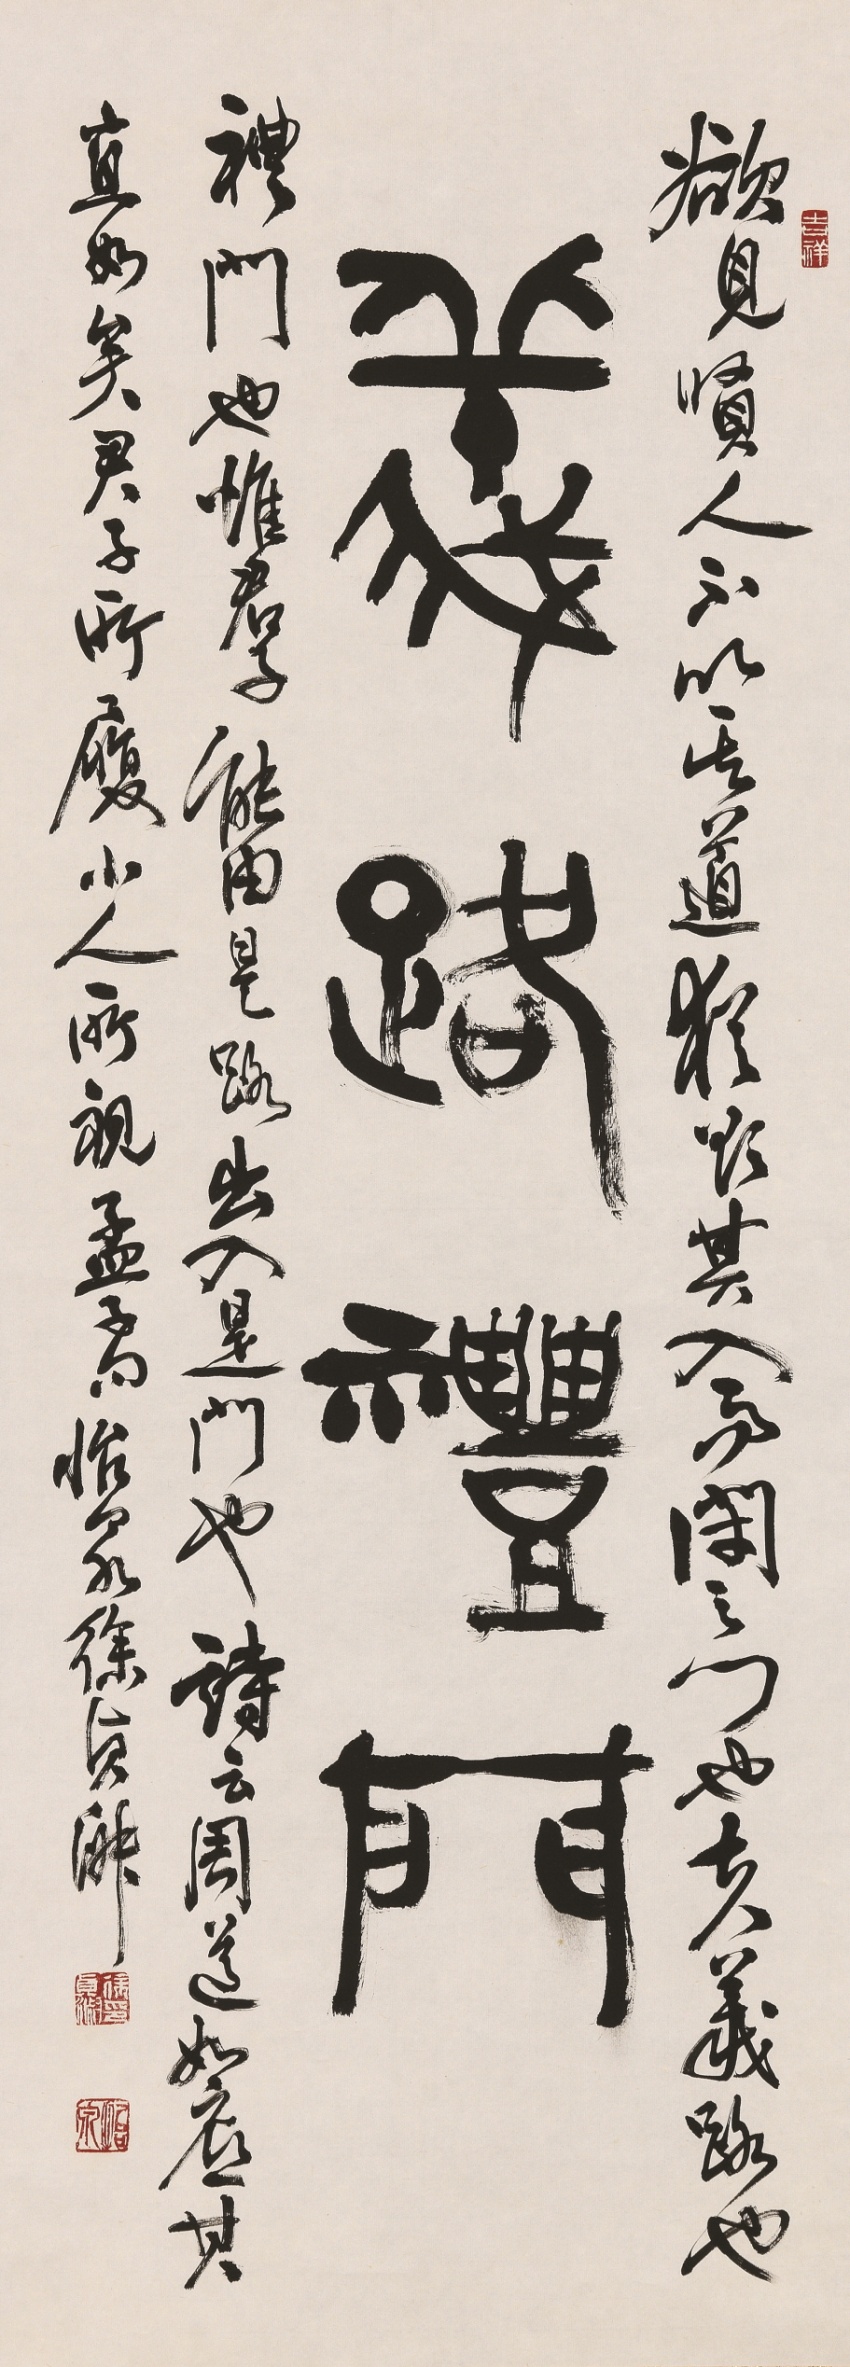 吉祥
欲見賢人不以其道猶欲其入而閉之門也夫義路也
義路禮門
禮門也惟君子能由是路出入是門也詩云周道如底其
直如矢君子所履小人所視孟子句怡泉徐貞淑
徐貞淑印
怡泉